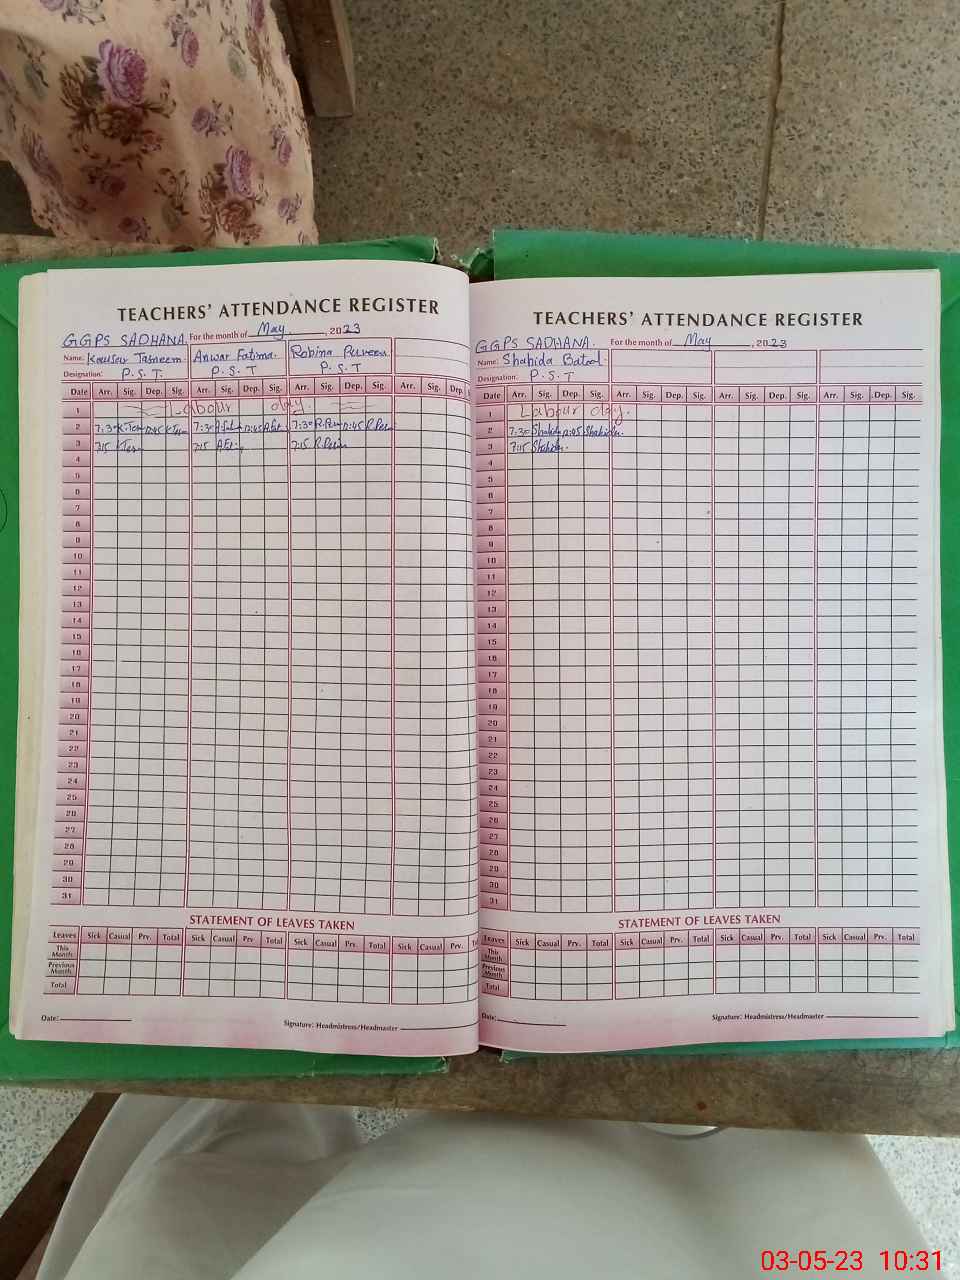 TEACHERS' ATTENDANCE REGISTER
GGPS SADHANA. For the month of May, 2023
Name: Kausar Tasneem Anwar Fatima. Robina Perveen
Designation: P.S.T. P.S.T P.S.T
Date Arr. Sig. Dep. Sig. Arr. Sig. Dep. Sig. Arr. Sig. Dep. Sig. Arr. Sig. Dep.
1 Labour day.
2 7:30 12:45 7:30 12:45 7:30 12:45
3 7:15 7:15 7:15
4
5
6
7
8
9
10
11
12
13
14
15
16
17
18
19
20
21
22
23
24
25
26
27
28
29
30
31
STATEMENT OF LEAVES TAKEN
Leaves Sick Casual Prv. Total Sick Casual Prv. Total Sick Casual Prv. Total Sick Casual Prv.
This Month
Previous Month
Total
Date:
Signature: Headmistress/Headmaster
TEACHERS' ATTENDANCE REGISTER
GGPS SADHANA. For the month of May, 2023
Name: Shahida Batool.
Designation: P.S.T
Date Arr. Sig. Dep. Sig. Arr. Sig. Dep. Sig. Arr. Sig. Dep. Sig. Arr. Sig. Dep. Sig.
1 Labour day.
2 7:30 Shahida 12:45 Shahida.
3 7:15 Shahida.
4
5
6
7
8
9
10
11
12
13
14
15
16
17
18
19
20
21
22
23
24
25
26
27
28
29
30
31
STATEMENT OF LEAVES TAKEN
Leaves Sick Casual Prv. Total Sick Casual Prv. Total Sick Casual Prv. Total Sick Casual Prv. Total
This Month
Previous Month
Total
Date:
Signature: Headmistress/Headmaster
03-05-23 10:31